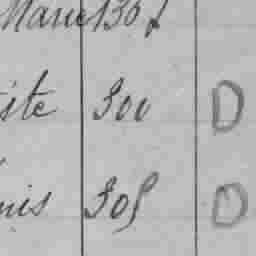 Marie 130 f
ite 300 D
nis 305 D